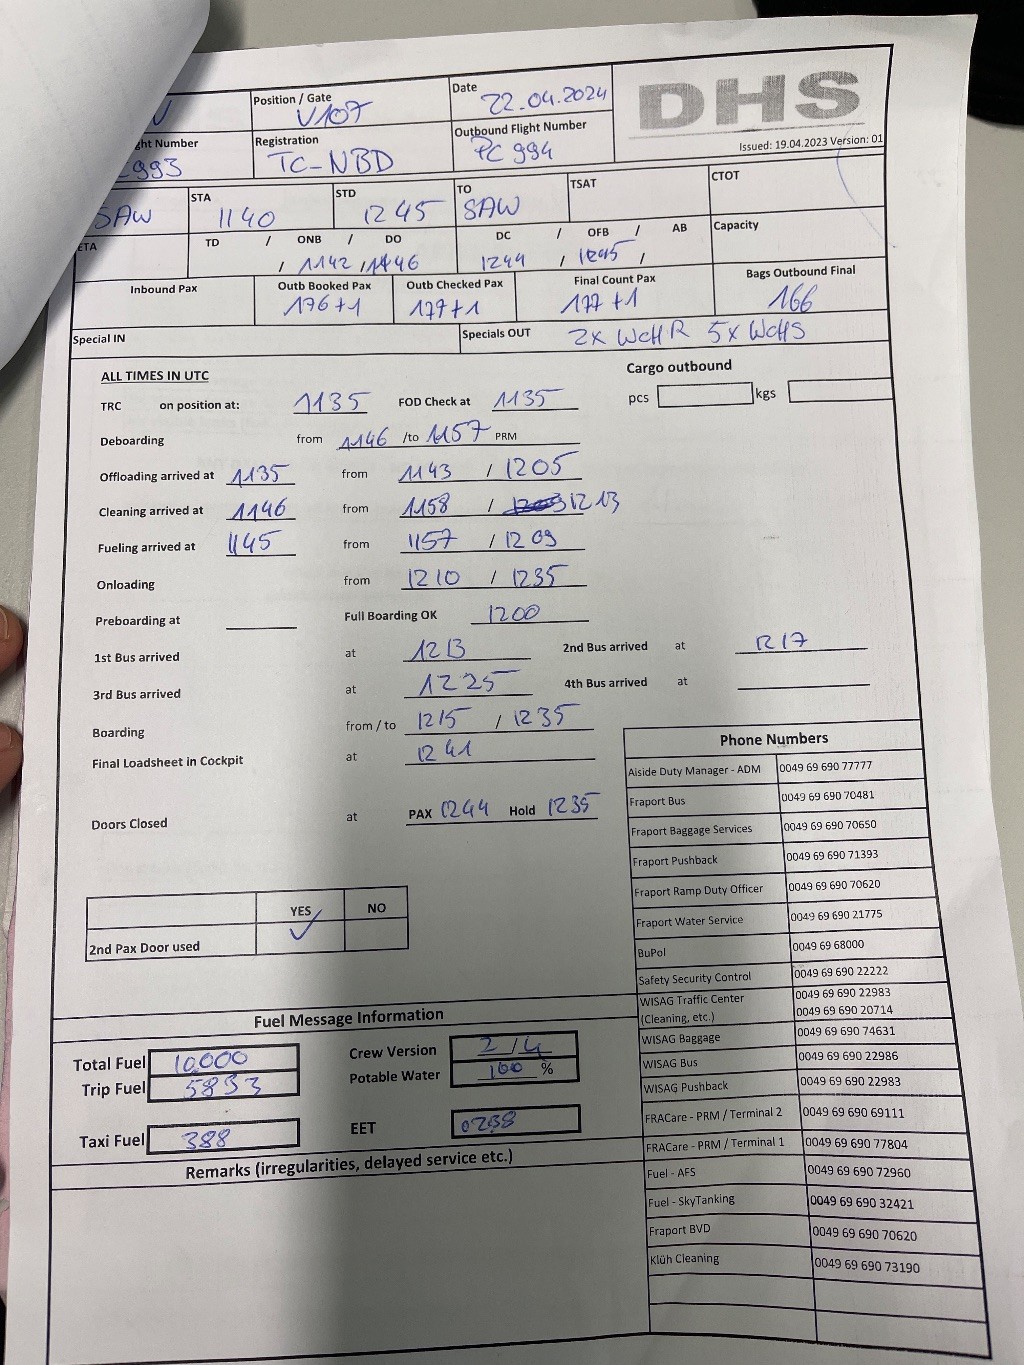 Position / Gate
V107
Date
22.04.2024
DHS
Issued: 19.04.2023 Version: 01
ght Number
993
Registration
TC-NBD
Outbound Flight Number
PC 994
SAW
STA
1140
STD
1245
TO
SAW
TSAT
CTOT
ETA
TD / ONB / DO
/ 1142 / 1446
DC / OFB / AB
1244 / 1245 /
Capacity
Inbound Pax
Outb Booked Pax
176+1
Outb Checked Pax
177+1
Final Count Pax
177+1
Bags Outbound Final
166
Special IN
Specials OUT 2x WCHR 5x WCHS
ALL TIMES IN UTC
Cargo outbound
pcs kgs
TRC on position at: 1135 FOD Check at 1135
Deboarding from 1146 /to 1157 PRM
Offloading arrived at 1135 from 1143 / 1205
Cleaning arrived at 1146 from 1158 / 1213
Fueling arrived at 1145 from 1157 / 1209
Onloading from 1210 / 1235
Preboarding at Full Boarding OK 1200
1st Bus arrived at 1213 2nd Bus arrived at 1217
3rd Bus arrived at 1225 4th Bus arrived at
Boarding from / to 1215 / 1235
Final Loadsheet in Cockpit at 1241
Doors Closed at PAX 1244 Hold 1235
YES NO
2nd Pax Door used ✓
Phone Numbers
Aiside Duty Manager - ADM 0049 69 690 77777
Fraport Bus 0049 69 690 70481
Fraport Baggage Services 0049 69 690 70650
Fraport Pushback 0049 69 690 71393
Fraport Ramp Duty Officer 0049 69 690 70620
Fraport Water Service 0049 69 690 21775
BuPol 0049 69 68000
Safety Security Control 0049 69 690 22222
WISAG Traffic Center 0049 69 690 22983
(Cleaning, etc.) 0049 69 690 20714
WISAG Baggage 0049 69 690 74631
WISAG Bus 0049 69 690 22986
WISAG Pushback 0049 69 690 22983
FRACare - PRM / Terminal 2 0049 69 690 69111
FRACare - PRM / Terminal 1 0049 69 690 77804
Fuel - AFS 0049 69 690 72960
Fuel - SkyTanking 0049 69 690 32421
Fraport BVD 0049 69 690 70620
Klüh Cleaning 0049 69 690 73190
Fuel Message Information
Total Fuel 10.000
Trip Fuel 5893
Taxi Fuel 388
Crew Version 2 / 4
Potable Water 100 %
EET 0238
Remarks (irregularities, delayed service etc.)